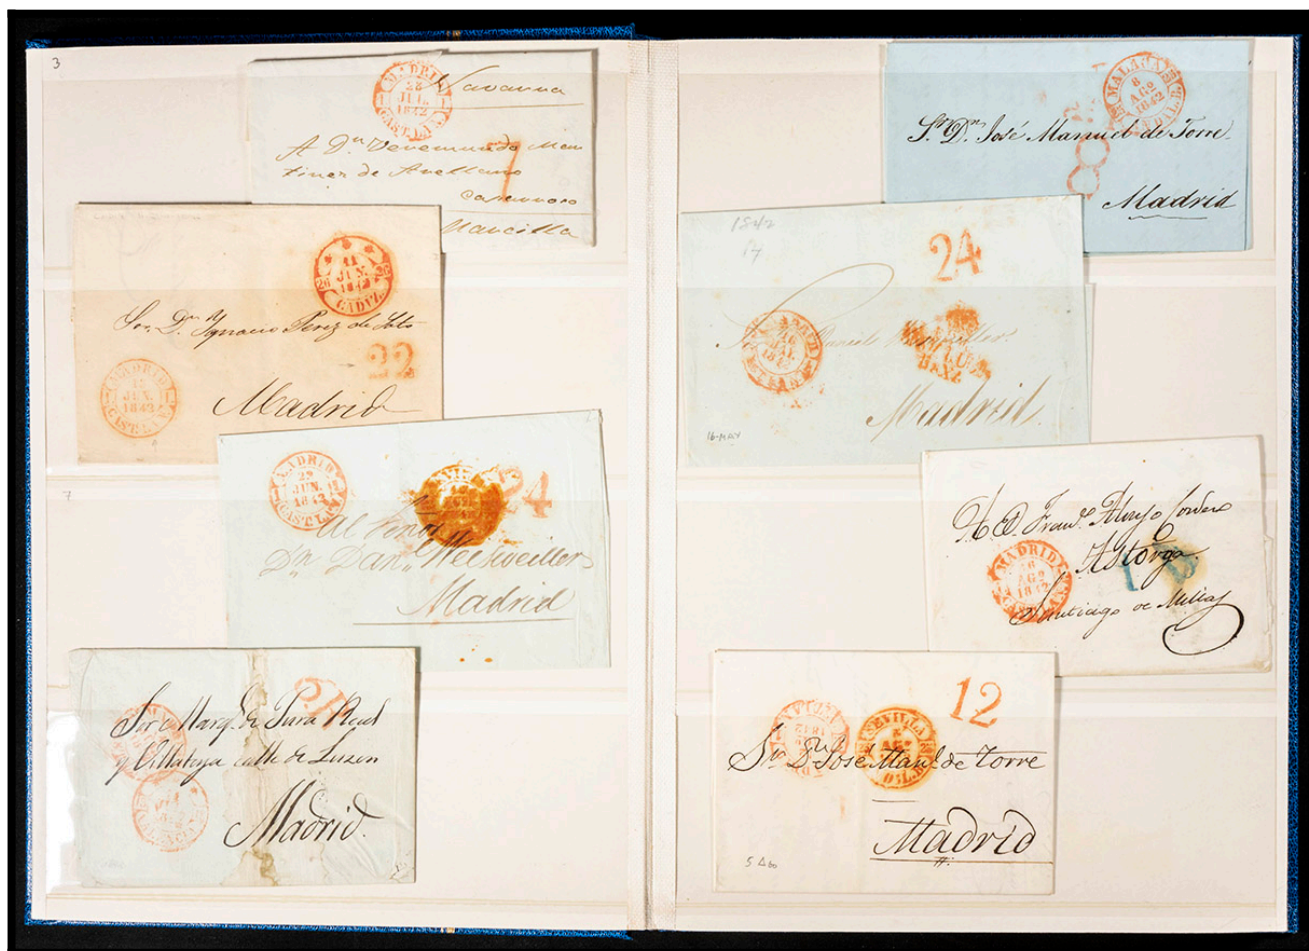 3
MADRID
28
JUL.
1842
CAST.LA N.
1
Navarra
A Dn Veremundo Mar
tinez de Arellano
Marcilla
11
JUN.
1842
CADIZ.
Sor. Dn Ignacio Perez de Soto
22
MADRID
JUN.
1842
CAST.LA N.
Madrid
7
MADRID
29
JUN.
1842
CAST.LA N.
24
Al Señor
Dn Danl Weisweiller
Madrid
Sor Marqs de Jura Real
y Villatoya calle de Luzon
Madrid.
MALAGA
8
AGO
1842
ANDAL. B.
Sr. Dn José Manuel de Torre
Madrid
1842
17
24
MADRID
16
1842
Daniel Weisweiller
Madrid.
16-MAY
Astorga.
MADRID
16
AGO
1842
CAST.LA N.
Santiago de Millas
12
SEVILLA
AGO
Sr Dn José Manl de Torre
Madrid
5 Ago